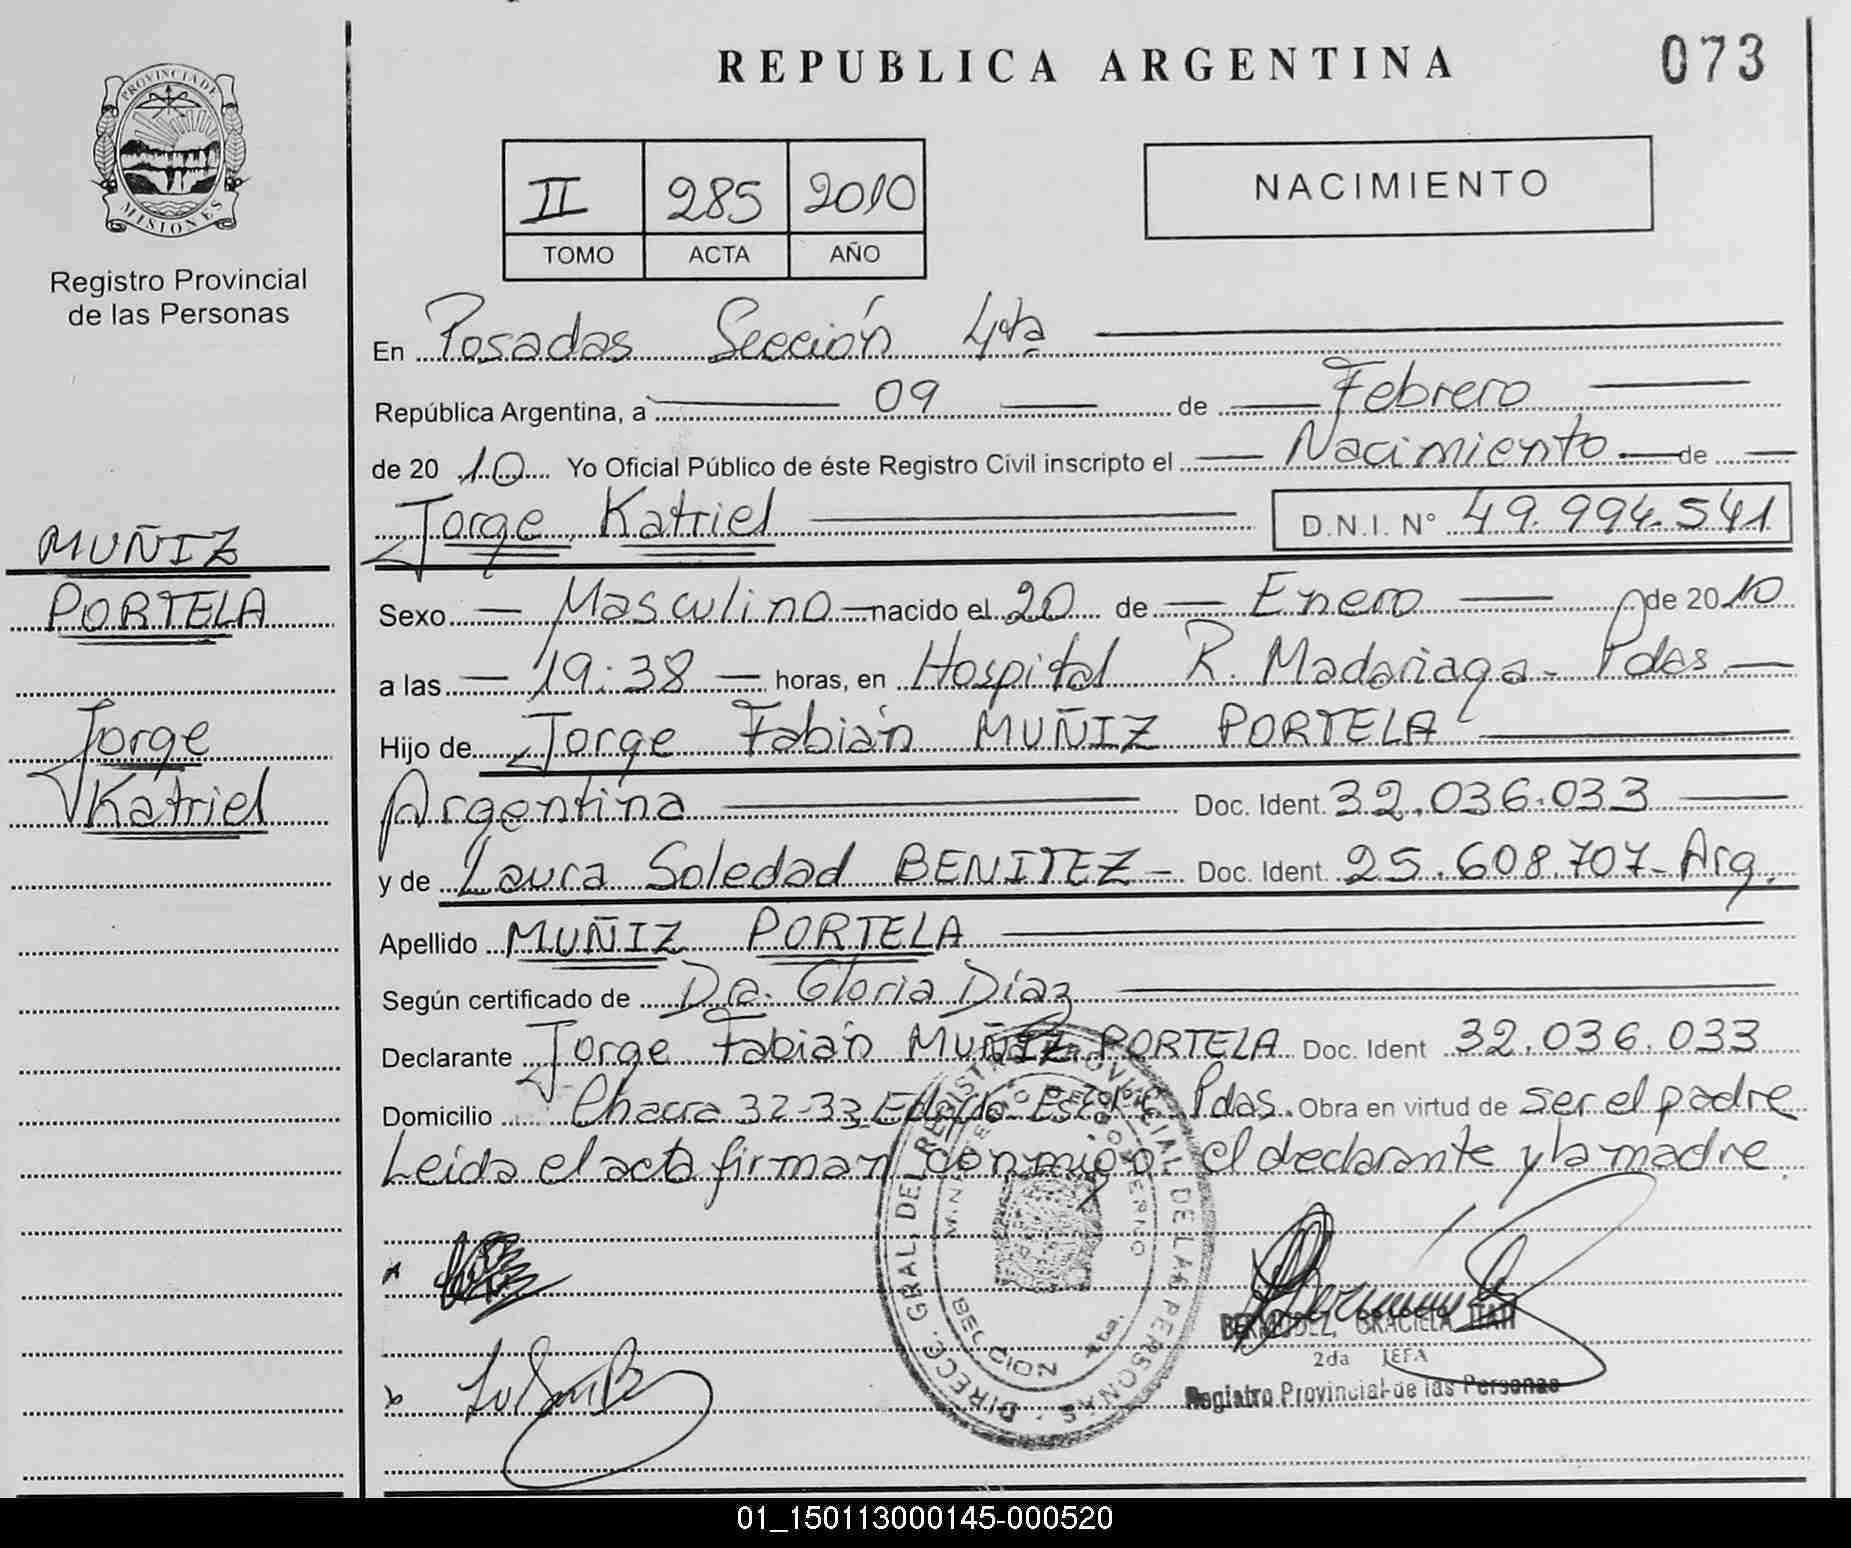 REPUBLICA ARGENTINA
073
PROVINCIA DE MISIONES
Registro Provincial
de las Personas
II 285 2010
TOMO ACTA AÑO
NACIMIENTO
En Posadas Sección 4ta
República Argentina, a 09 de Febrero
de 2010 Yo Oficial Público de éste Registro Civil inscripto el Nacimiento de
Jorge Katriel D.N.I. N° 49.994.541
MUÑIZ
PORTELA
Jorge
Katriel
Sexo Masculino nacido el 20 de Enero de 2010
a las 19:38 horas, en Hospital R. Madariaga - Pdas
Hijo de Jorge Fabián MUÑIZ PORTELA
Argentina Doc. Ident. 32.036.033
y de Laura Soledad BENITEZ - Doc. Ident. 25.608.707- Arg.
Apellido MUÑIZ PORTELA
Según certificado de Dra. Gloria Díaz
Declarante Jorge Fabián MUÑIZ PORTELA Doc. Ident 32.036.033
Domicilio Chacra 32-33 Edificio Pdas. Obra en virtud de ser el padre
Leída el acta firman conmigo el declarante y la madre
DIRECC. GRAL. DEL REGISTRO PROVINCIAL DE LAS PERSONAS
BERMUDEZ, GRACIELA
2da JEFA
Registro Provincial de las Personas
01_150113000145-000520